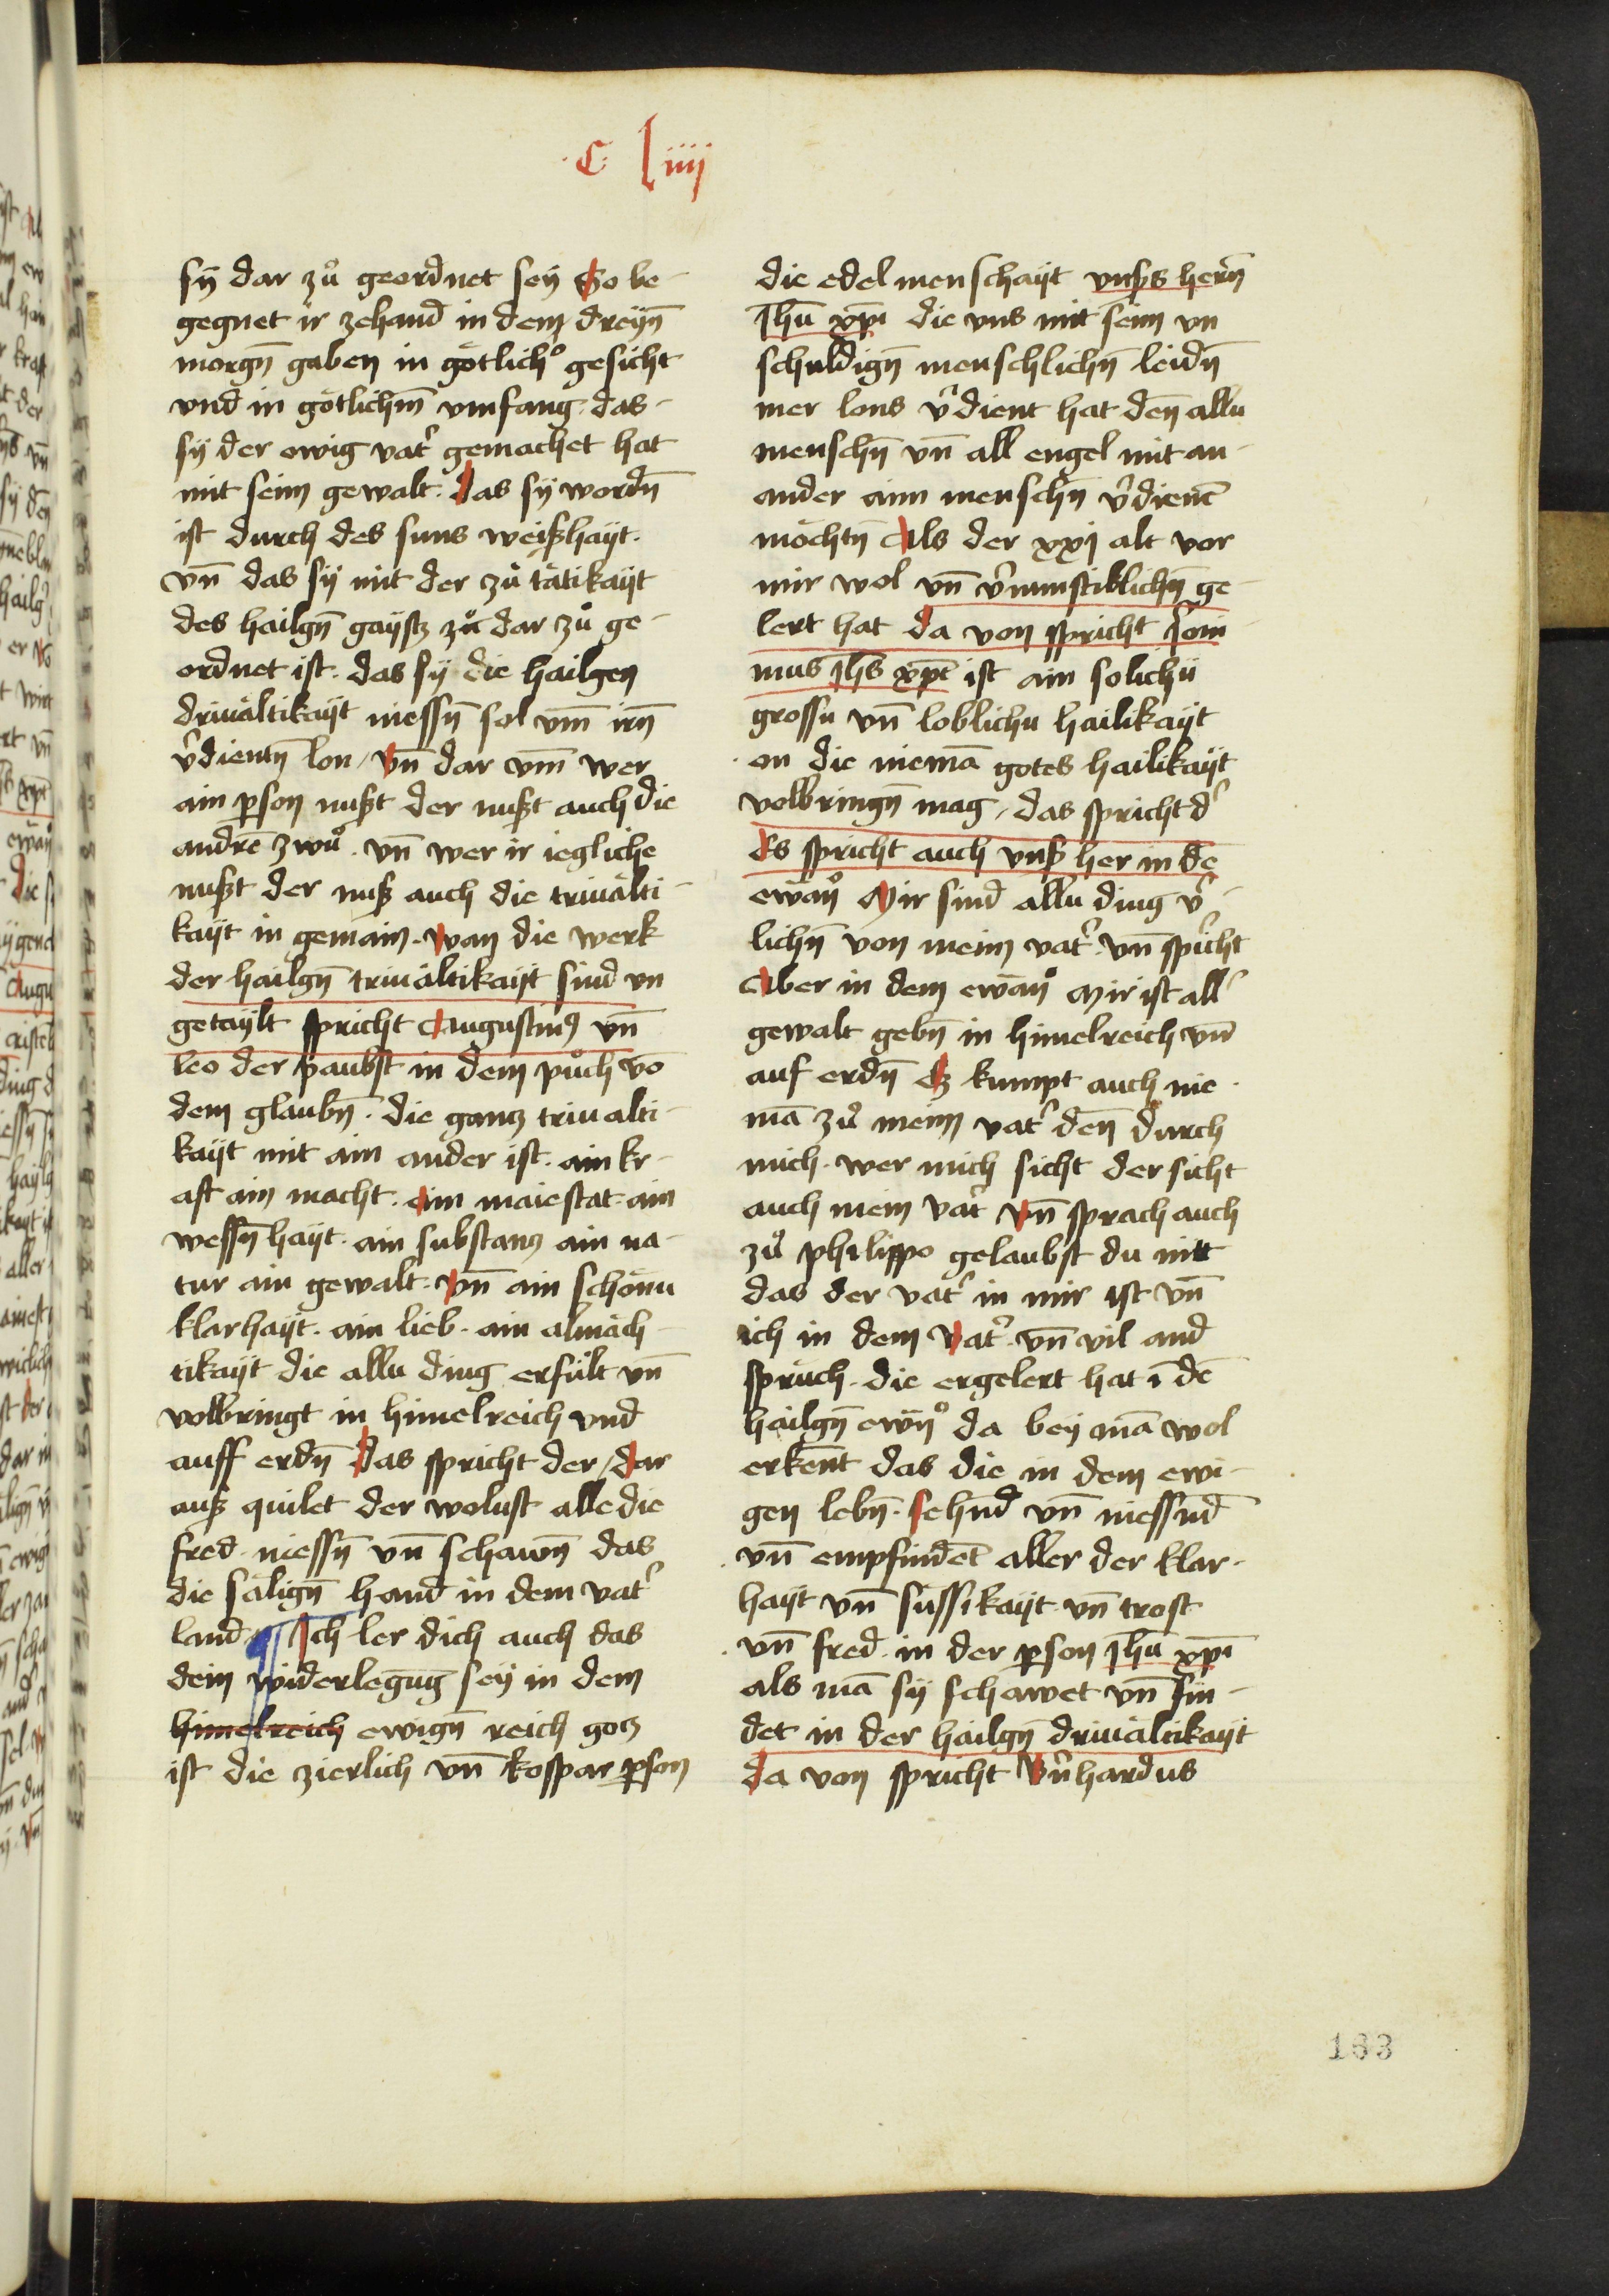 ·C· liiij
sÿ dar zů geordnet seÿ So be-
gegnet ir zehand in dem dreÿn̄
morgn̄ gaben in götlich° gesicht
vnd in götlichm̄ vmfang· das-
sÿ der ewig vat᷑ gemachet hat
mit seim gewalt· das sÿ wordn̄
ist durch des suns weißhaÿt·
vn̄ das sÿ mit der zů tätikaÿt
des hailgn̄ gaÿstz zů dar zů ge-
ordnet ist· das sÿ die hailgen
driuältikaÿt niessn̄ sol vm̄ irn̄
v᷑dientn̄ lon / vn̄ dar vm̄ wer
ain ꝑson nußt der nußt auch die
andrē zwů· vn̄ wer ir iegliche
nußt der nuß auch die triuälti-
kaÿt in gemain· wan die werk
der hailgn̄ triuältikaÿt sind vn
getaÿlt spricht Augustinꝰ vn̄
leo der paubst in dem půch vō
dem glaubn̄· die gantz triualti-
kaÿt mit ain ander ist· ain kr-
aft ain macht· ain maiestat· ain
wessn̄haÿt· ain substantz ain na-
tur ain gewalt· vn̄ ain schönu
klarhaÿt· ain lieb· ain almäch-
tikaÿt die allu ding erfült vn̄
volbringt in himelreich vnd
auff erdn̄ das spricht der / dar
auß quilet der wolust alle die
fred· niessn̄ vn̄ schawn̄ das
die sälign̄ hand in dem vat᷑
land ¶ Ich ler dich auch das
dein widerlegūg seÿ in dem
himelreich ewign̄ reich gotz
ist die zierlich vn̄ kospar ꝑson
die edel menschaÿt vnsß hern̄
Jhū xp̄i die vns mit seim vn
schuldign̄ menschlichn̄ leidn̄
mer lons v᷑dient hat den̄ allu
menschn̄ vn̄ all engel mit an-
ander aim menschn̄ v᷑dienēt
möchtn̄ Als der xxj alt vor
mir wol vn̄ v᷑nunstiklichn̄ ge-
lert hat da von spricht Joni-
mus Jhs xp̄c ist ain solichü
grossu vn̄ loblichu hailikaÿt
on die niemā gotes hailikaÿt
volbringn̄ mag / das spricht d᷑
ds spricht auch vnß her in de
ewān° Mir sind allu ding v᷑-
lichn̄ von meim vat᷑· vn̄ sp᷑icht
Aber in dem ewān° Mir ist all᷑
gewalt gebn̄ in himelreich vn̄
auf erdn̄ Es kumpt auch nie-
mā zů meim vat᷑ den̄ durch
mich· wer mich sicht der sicht
auch mein vat᷑ vn̄ sprach auch
zů philippo gelaubst du nitt
das der vat᷑ in mir ist vn̄
ich in dem Vat᷑· vn̄ vil and
sprüch· die er gelert hat ī dē
hailgn̄ ewn̄° da beÿ mā wol
erkent das die in dem ewi-
gen lebn̄· sehnd vn̄ niessnd
vn̄ empfindēt aller der klar-
haÿt vn̄ süssikaÿt· vn̄ trost
vn̄ fred· in der ꝑson Jhū xp̄i
als mā sÿ schawet vn̄ fin-
det in der hailgn̄ driuältikaÿt
da von spricht B᷑nhardus
163